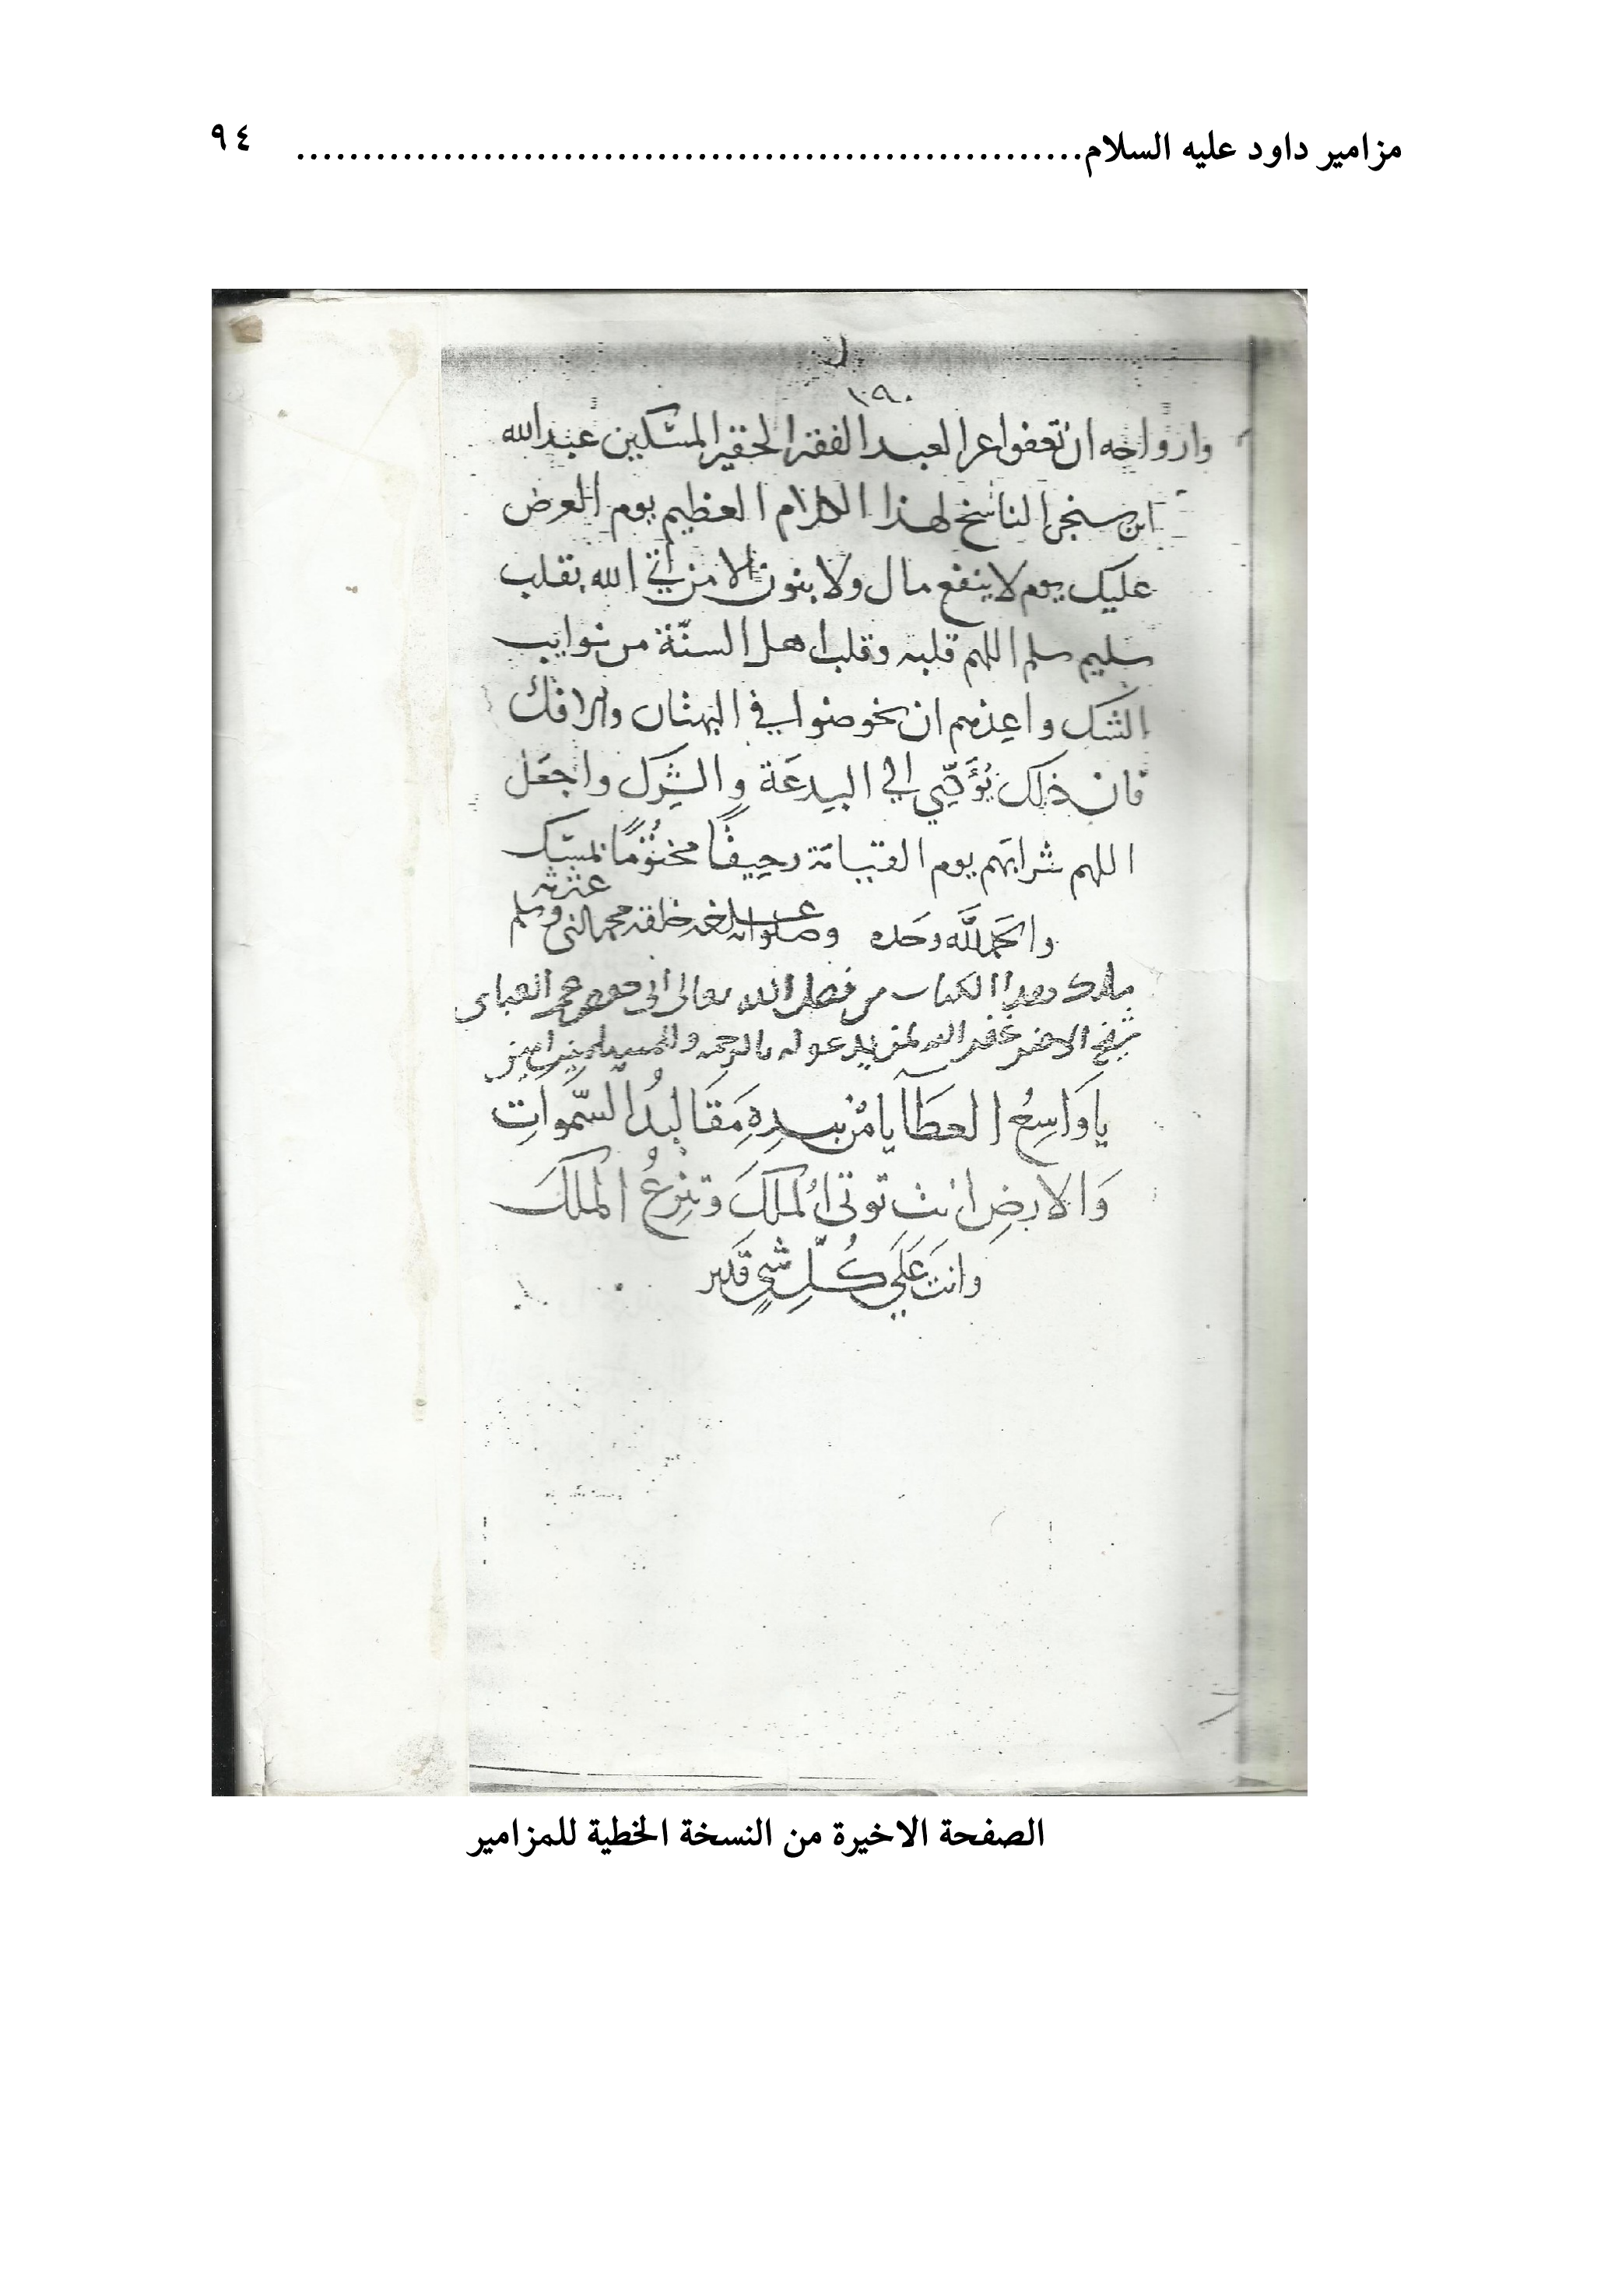 مزامير داود عليه السلام............................................................ ٩٤
١٠٩٠
وازواجه ان تعفوا عن العبد الفقير الحقير المسكين عبد الله
ابن سنجر الناسخ لهذا الكلام العظيم يوم العرض
عليك يوم لا ينفع مال ولا بنون الا من اتي الله بقلب
سليم سلم اللهم قلبه وقلب اهل السنّة من نوايب
الشك واعِذهم ان يخوضوا في البهتان والافك
فان ذلك يُؤَدِّي الي البِدعَة والشِرك واجعَل
اللهم شرابهم يوم القيامة رحِيقًا مختُومًا بمسك
والحَمد لله وَحَده وصلواته على خير خلقه محمد النبي وعترته وسلم
ملك هذا الكتاب من فضل الله تعالى
غفر الله لمن يدعو له بالرحمه وللمسلمين امين
يا وَاسِعُ العَطَآيا مَن بيدِهِ مَقَاليدُ السَّمَواتِ
وَالارضِ انت توتي المُلكَ وتنزِعُ المُلكَ
وانتَ عَلَي كُلِّ شيٍ قَدير
الصفحة الاخيرة من النسخة الخطية للمزامير